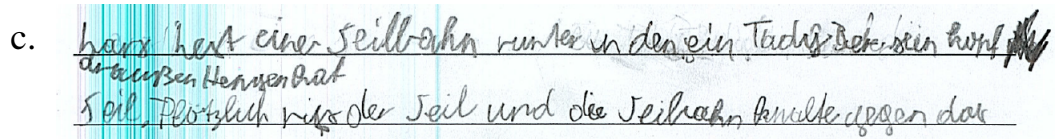 c. Lars hert eine Seilbahn runter in den ein Tachs Ber sein kopf
draußen Hengen hat
Seil. Plötzlich riss der Seil und die Seilbahn knallte gegen das